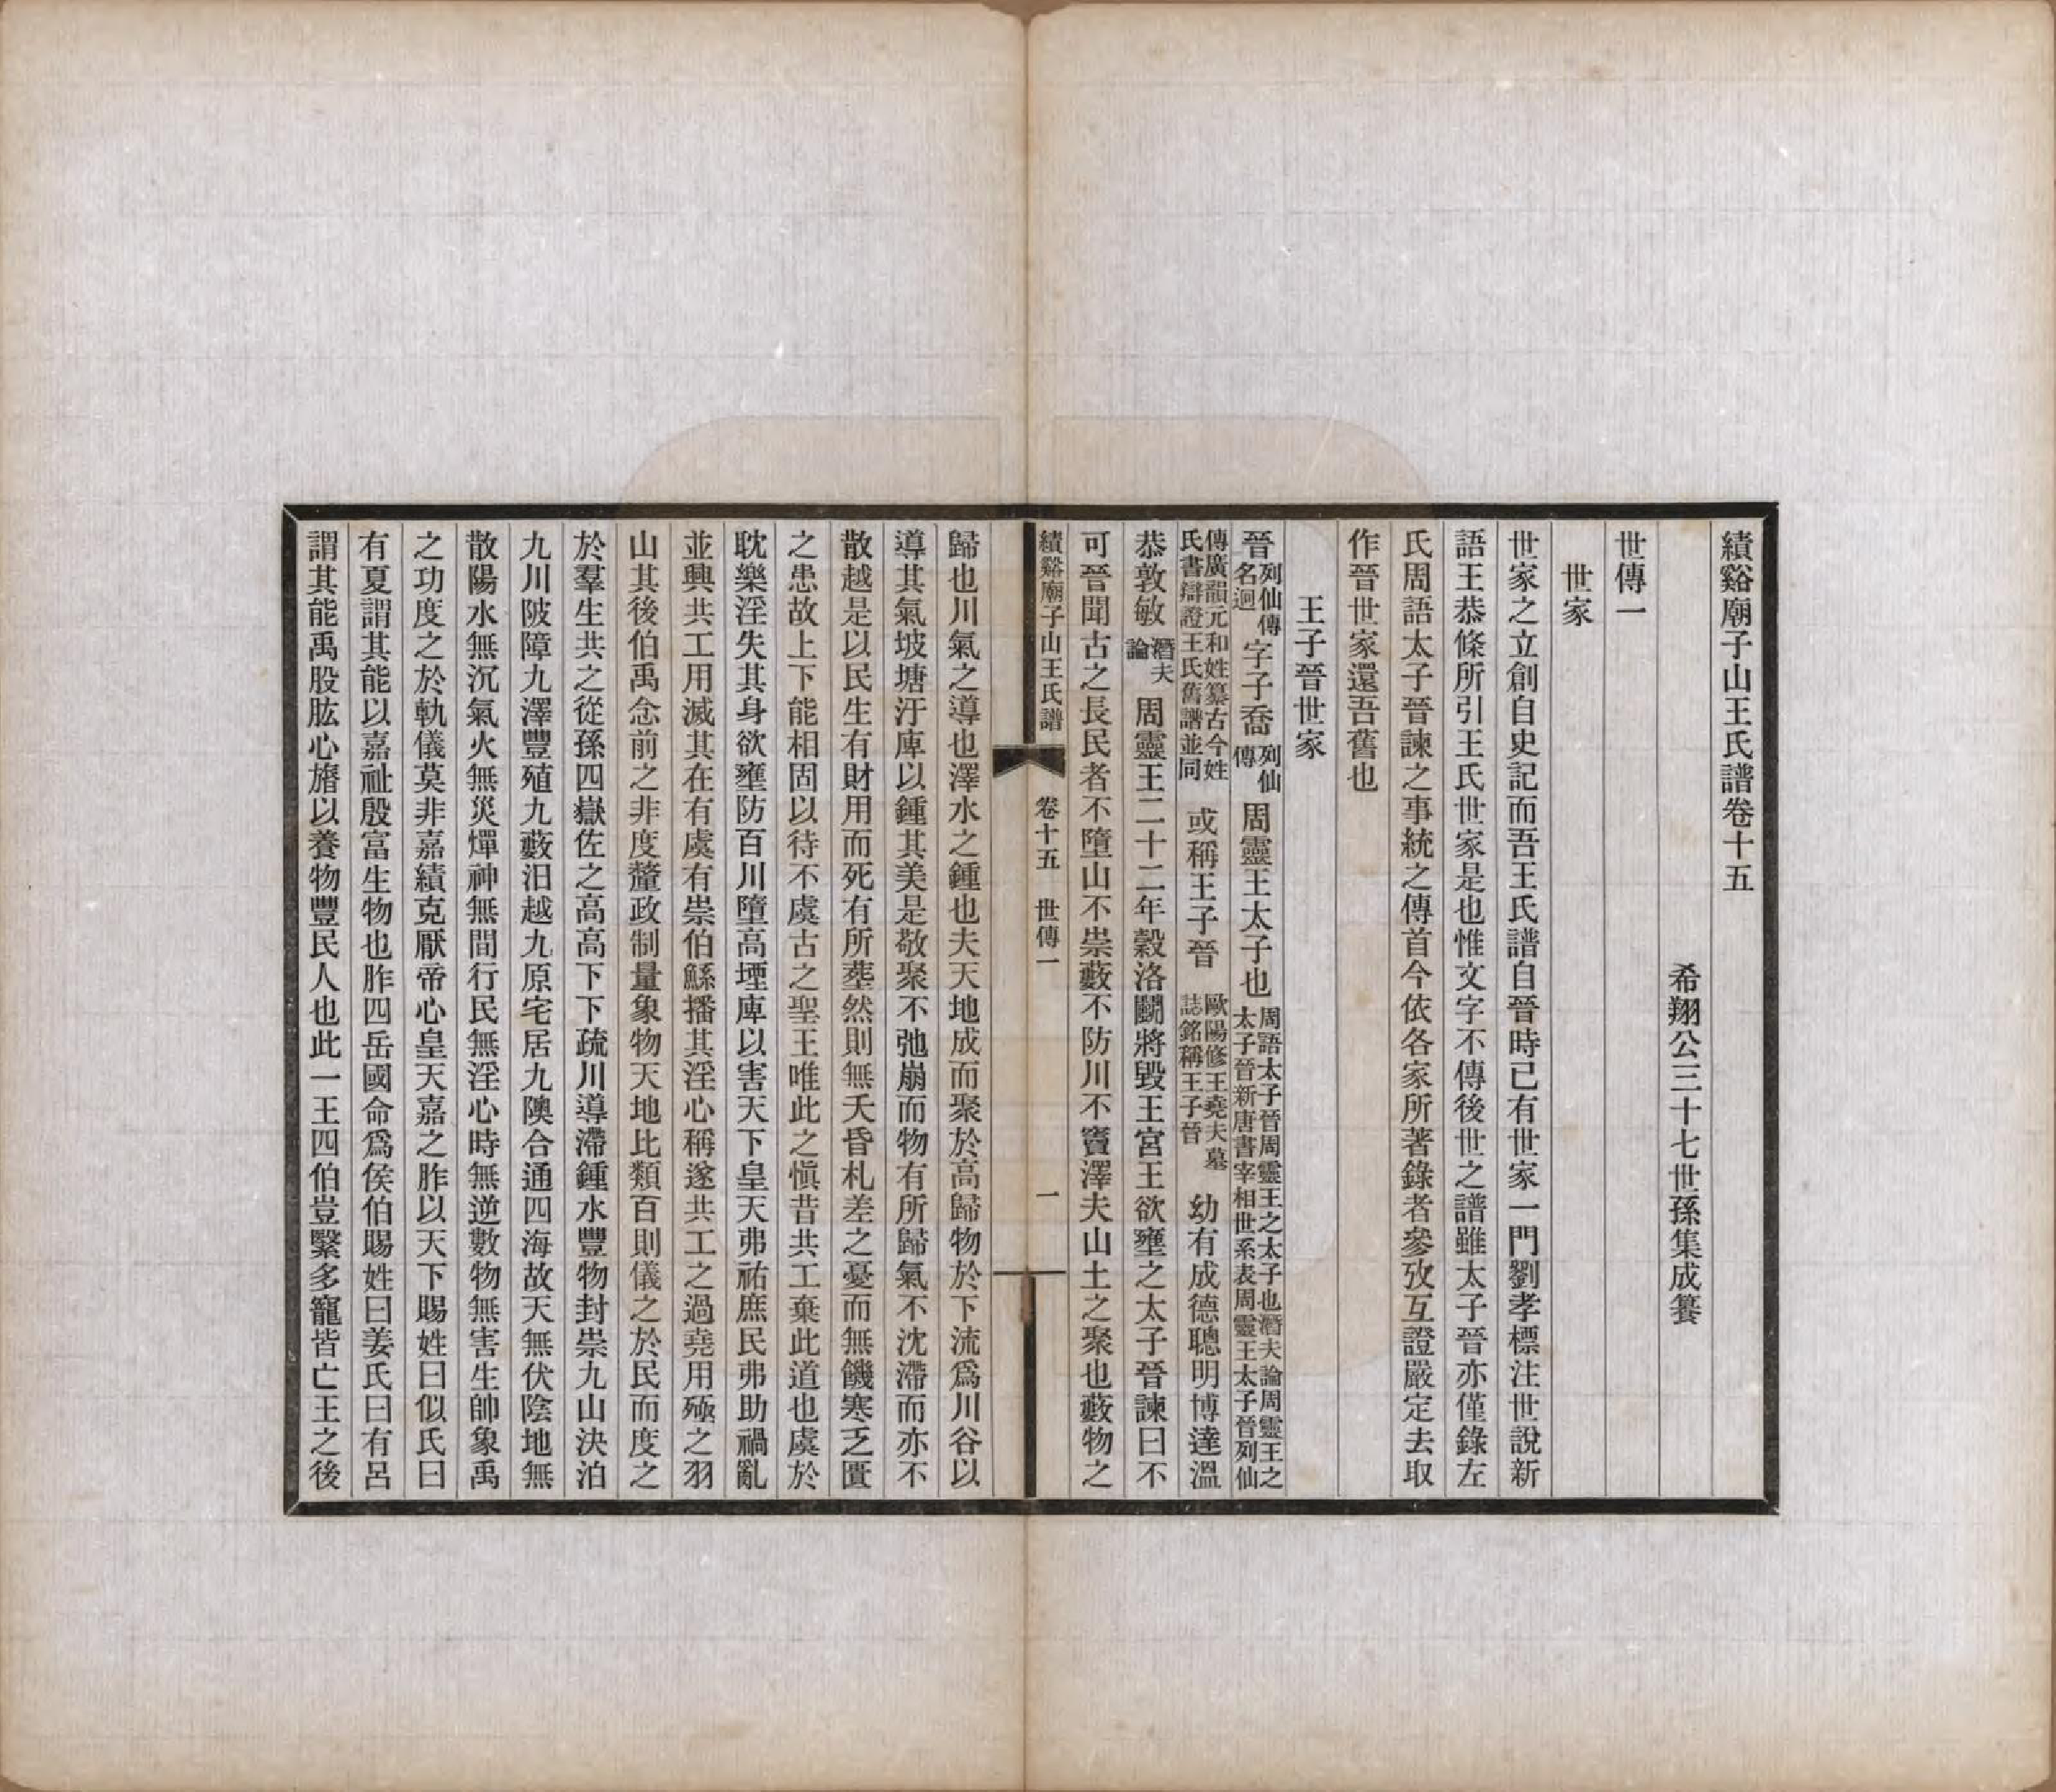 績谿廟子山王氏譜卷十五
希翔公三十七世孫集成纂
世傳一
世家
世家之立創自史記而吾王氏譜自晉時已有世家一門劉孝標注世說新
語王恭條所引王氏世家是也惟文字不傳後世之譜雖太子晉亦僅錄左
氏周語太子晉諫之事統之傳首今依各家所著錄者參攷互證嚴定去取
作晉世家還吾舊也
王子晉世家
晉列仙傳名迥字子喬列仙傳周靈王太子也周語太子晉周靈王之太子也潛夫論周靈王之太子晉新唐書宰相世系表周靈王太子晉列仙
傳廣韻元和姓纂古今姓氏書辯證王氏舊譜並同或稱王子晉歐陽修王堯夫墓誌銘稱王子晉幼有成德聰明博達溫
恭敦敏潛夫論周靈王二十二年穀洛鬭將毀王宮王欲壅之太子晉諫曰不
可晉聞古之長民者不墮山不崇藪不防川不竇澤夫山土之聚也藪物之
績谿廟子山王氏譜 卷十五 世傳一 一
歸也川氣之導也澤水之鍾也夫天地成而聚於高歸物於下流爲川谷以
導其氣坡塘汙庳以鍾其美是敬聚不弛崩而物有所歸氣不沈滯而亦不
散越是以民生有財用而死有所葬然則無夭昏札差之憂而無饑寒乏匱
之患故上下能相固以待不虞古之聖王唯此之愼昔共工棄此道也虞於
耽樂淫失其身欲壅防百川墮高堙庳以害天下皇天弗祐庶民弗助禍亂
並興共工用滅其在有虞有崇伯鯀播其淫心稱遂共工之過堯用殛之羽
山其後伯禹念前之非度釐政制量象物天地比類百則儀之於民而度之
於羣生共之從孫四嶽佐之高高下下疏川導滯鍾水豐物封崇九山決汨
九川陂障九澤豐殖九藪汨越九原宅居九隩合通四海故天無伏陰地無
散陽水無沉氣火無災燀神無間行民無淫心時無逆數物無害生帥象禹
之功度之於軌儀莫非嘉績克厭帝心皇天嘉之胙以天下賜姓曰似氏曰
有夏謂其能以嘉祉殷富生物也胙四岳國命爲侯伯賜姓曰姜氏曰有呂
謂其能禹股肱心膂以養物豐民人也此一王四伯豈繄多寵皆亡王之後